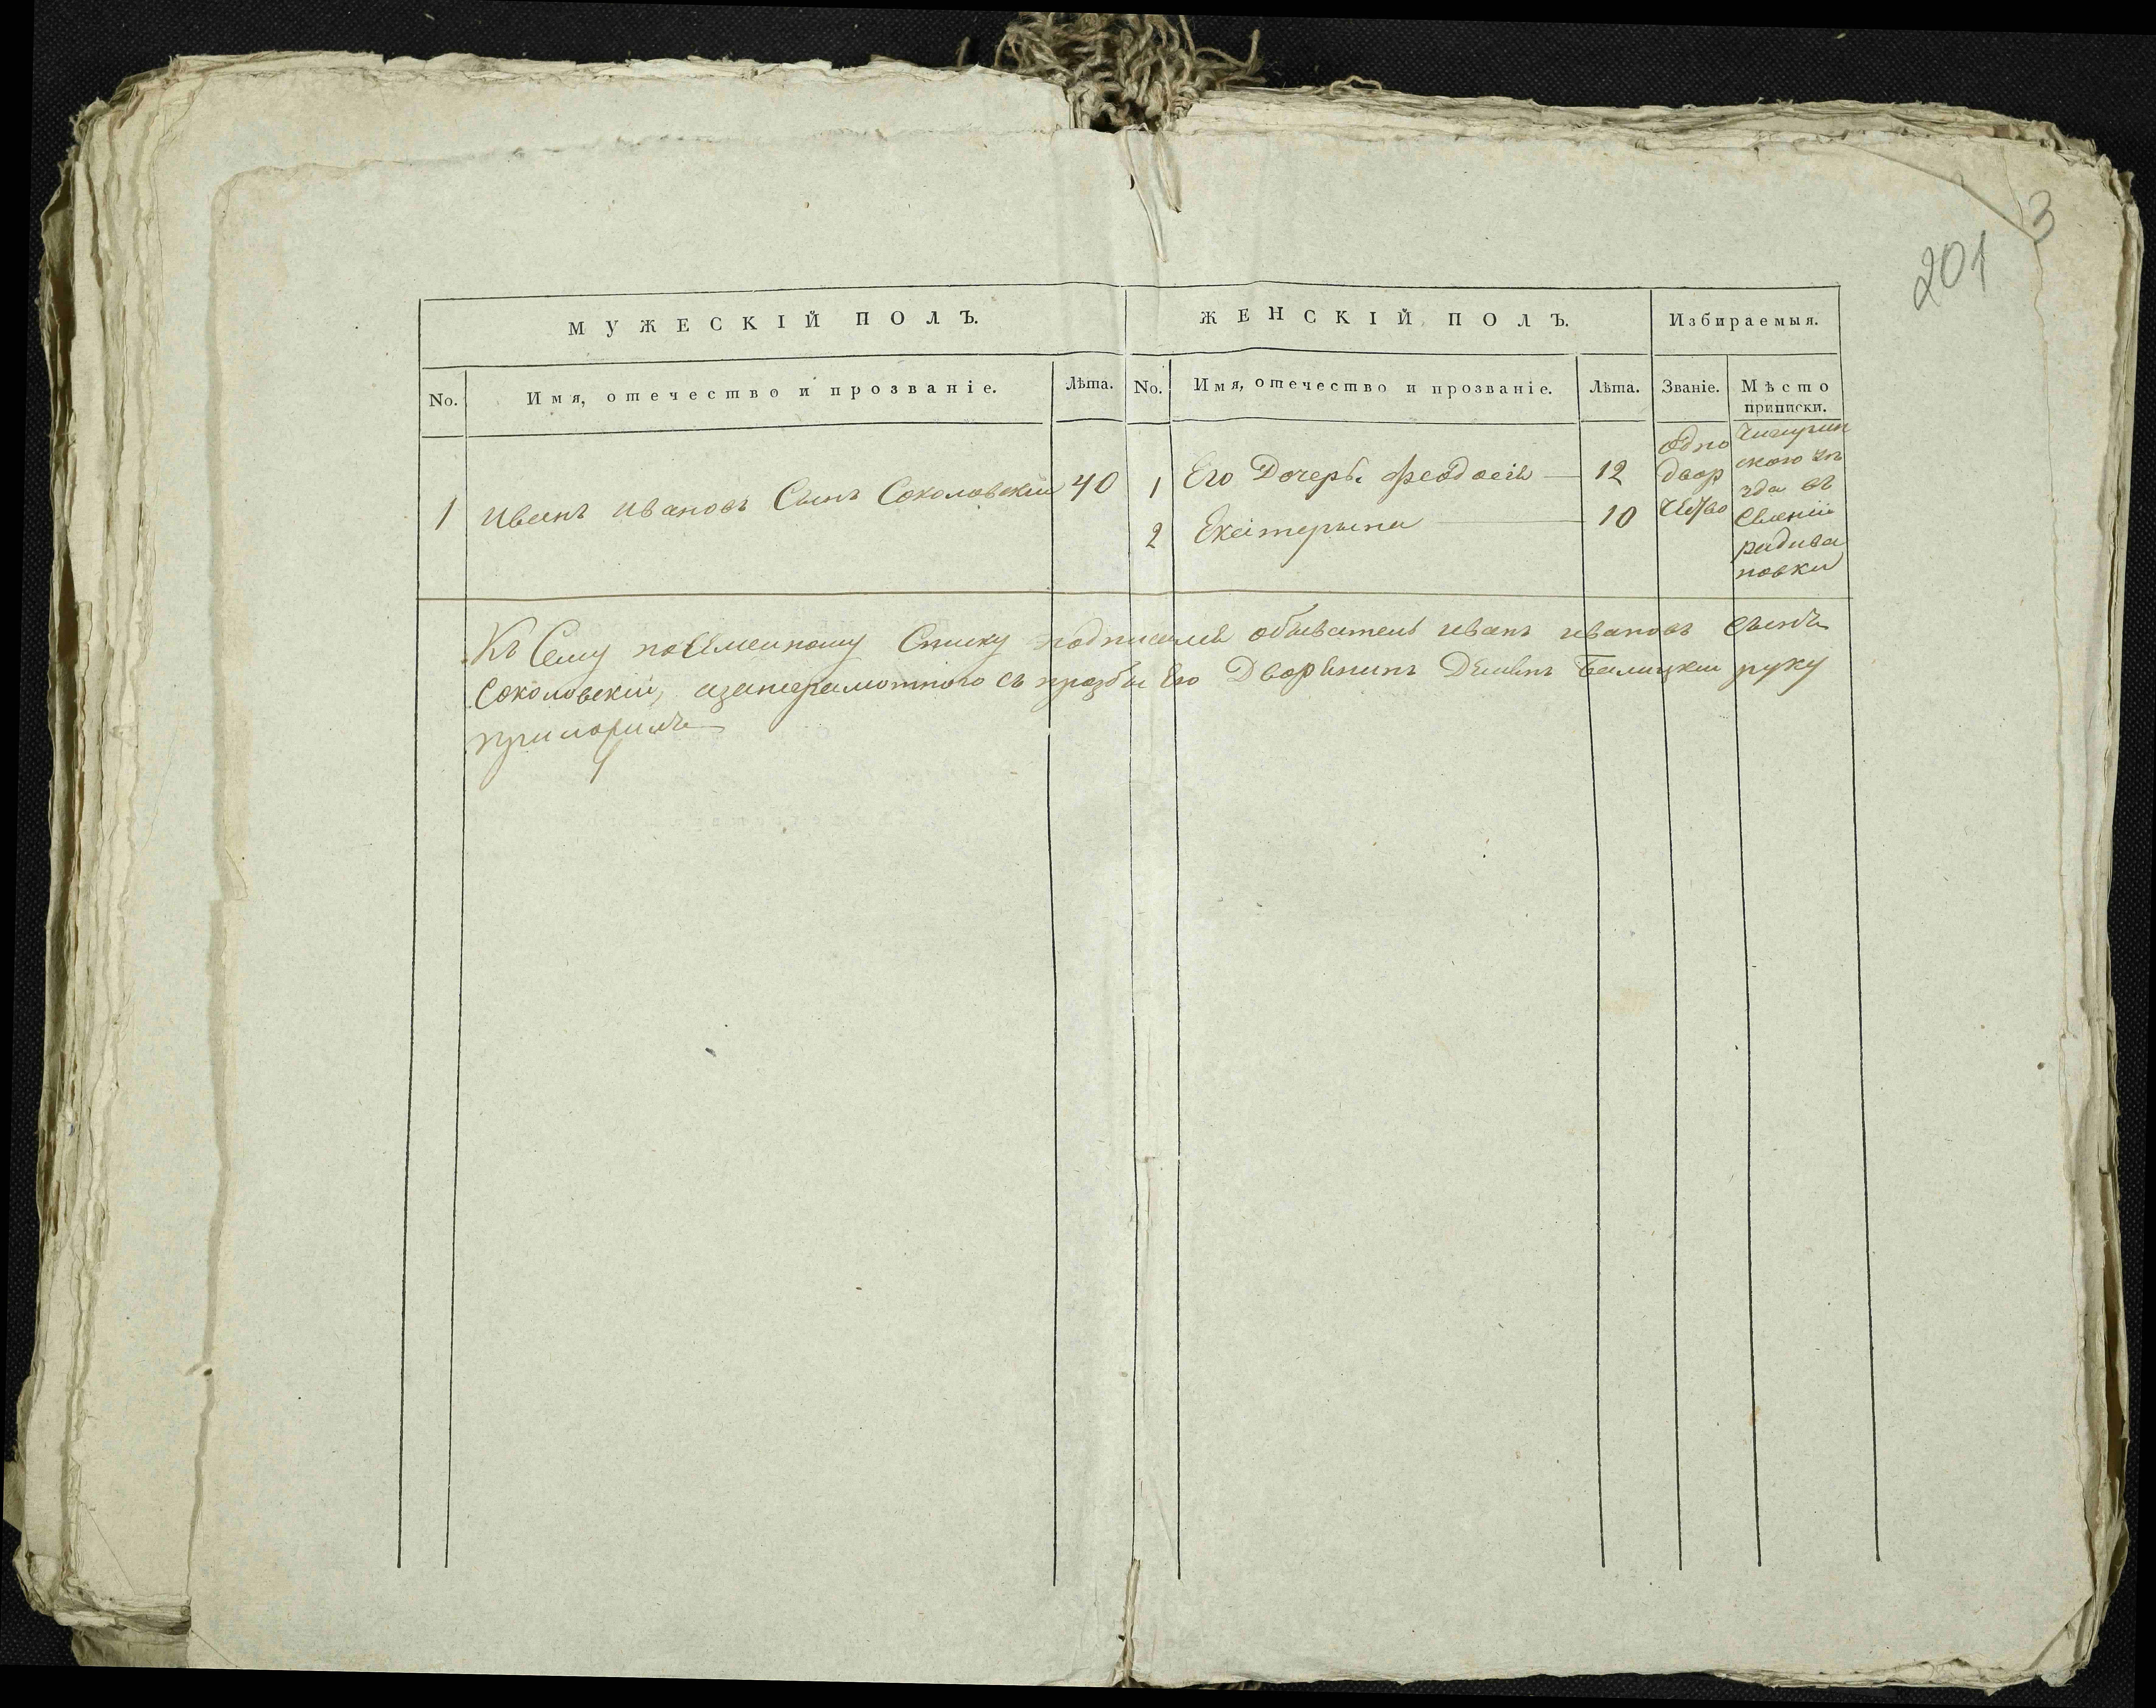 3
201
МУЖЕСКІЙ ПОЛЪ. ЖЕНСКІЙ ПОЛЪ. Избираемыя.
No. Имя, отечество и прозваніе. Лѣта. No. Имя, отечество и прозваніе. Лѣта. Званіе. Мѣсто
приписки.
1 Иванъ Ивановъ Сынъ Соколовскій 40 1 Его Дочерь Феодосія 12 Одно
двор
Чигирин
ского уѣ
зда въ
Селеніи
радива
новки
2 Екатерина 10
Къ Сему поименному Списку подписался обыватель Иванъ Ивановъ Сынъ
Соколовскій, а за неграмотного съ прозбы Его Дворянинъ Балицкій руку
приложилъ